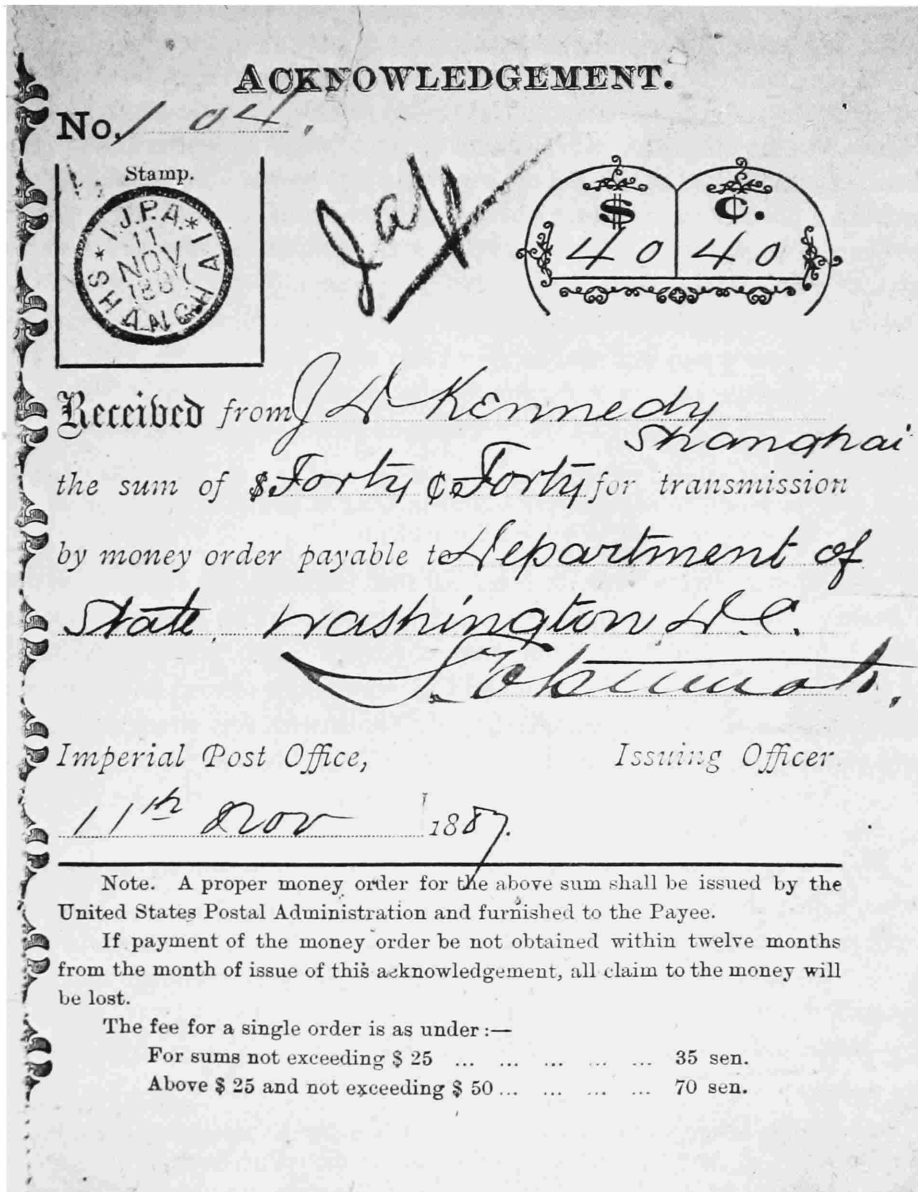 ACKNOWLEDGEMENT.
No. 104.
Stamp.
I.J.P.A.
11
NOV
1887
SHANGHAI
$ ₵.
40 40
Received from J D Kennedy
Shanghai
the sum of $ Forty ₵ Forty for transmission
by money order payable to Department of
State, Washington D.C.
Imperial Post Office, Issuing Officer.
11th Nov 1887.
Note. A proper money order for the above sum shall be issued by the
United States Postal Administration and furnished to the Payee.
If payment of the money order be not obtained within twelve months
from the month of issue of this acknowledgement, all claim to the money will
be lost.
The fee for a single order is as under :—
For sums not exceeding $ 25 ... ... ... ... ... 35 sen.
Above $ 25 and not exceeding $ 50 ... ... ... ... 70 sen.